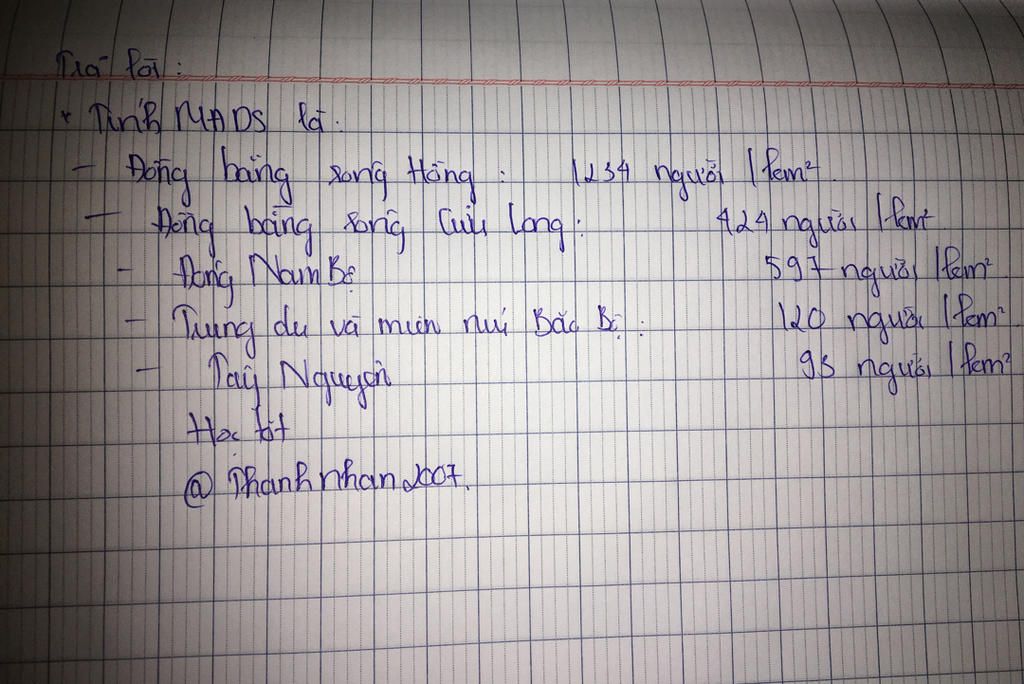 Trả lời:
* Tính MĐDS là:
- Đồng bằng sông Hồng: 1234 người/km²
- Đồng bằng sông Cửu Long: 424 người/km²
- Đông Nam Bộ 597 người/km²
- Trung du và miền núi Bắc Bộ: 120 người/km²
- Tây Nguyên 93 người/km²
Học tốt
@Thanhnhan2007.